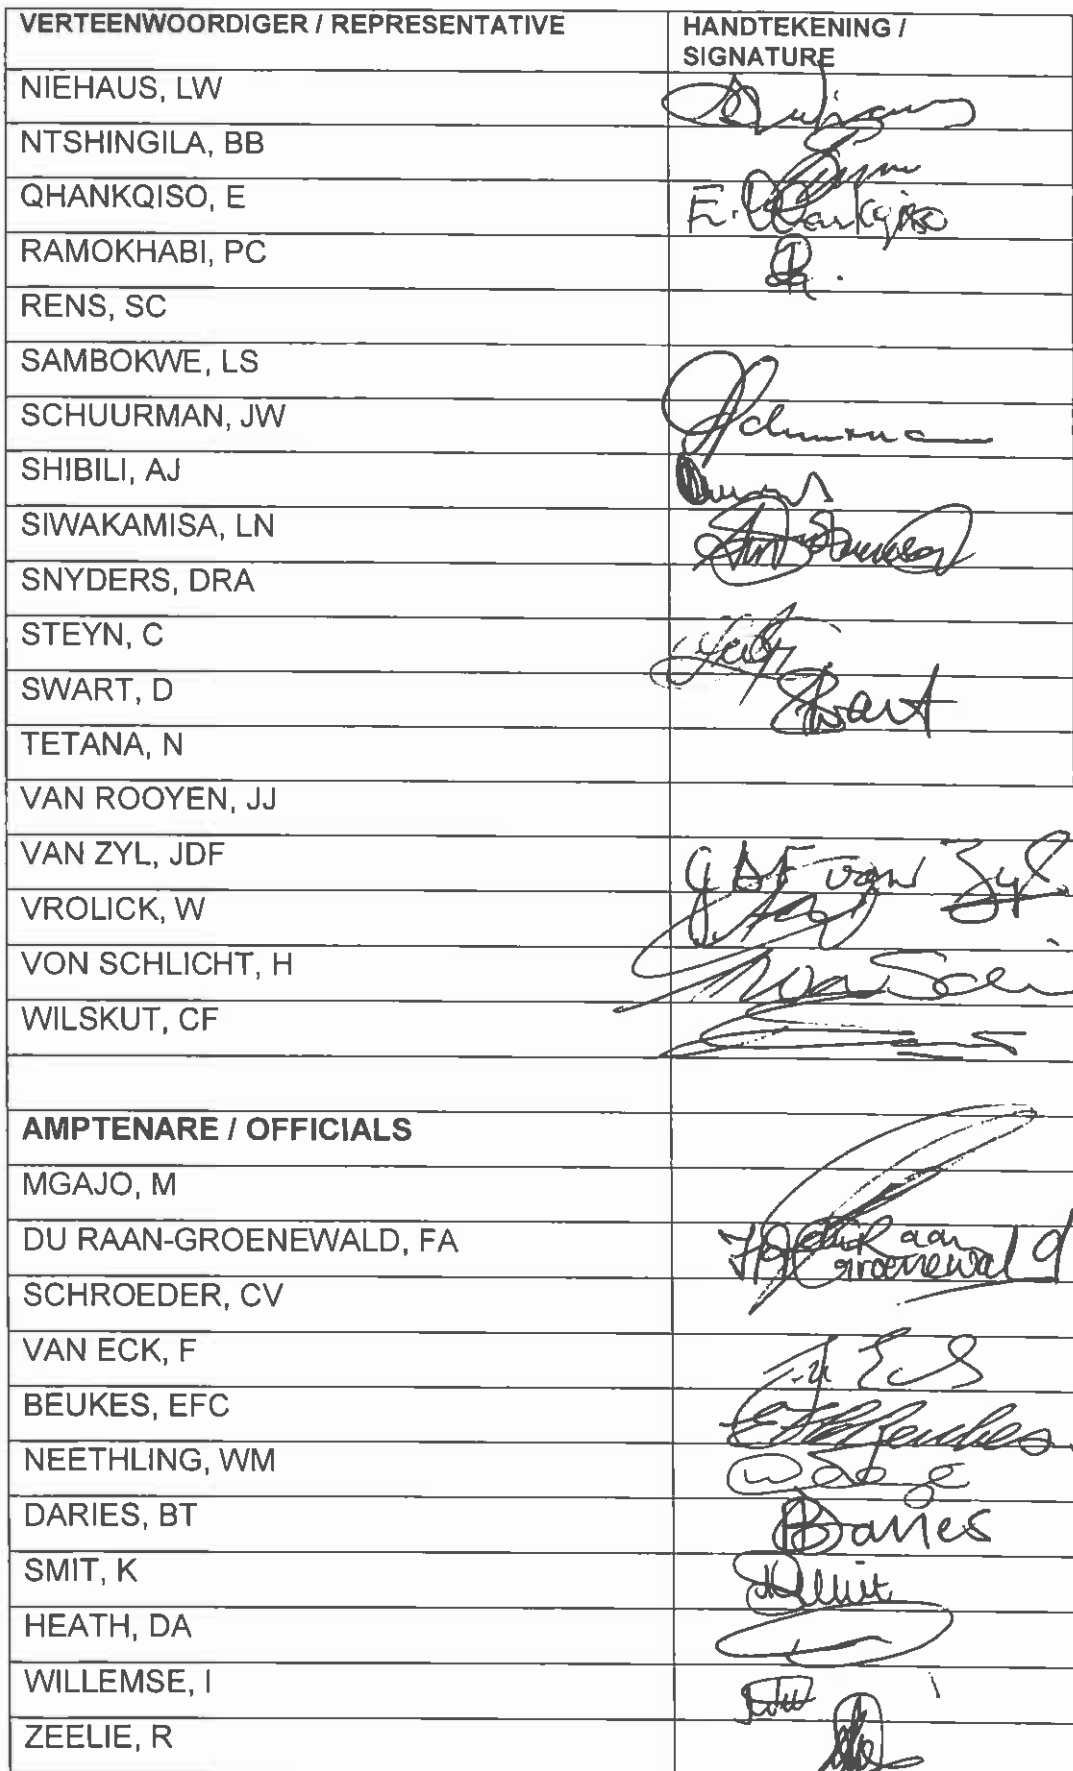 VERTEENWOORDIGER / REPRESENTATIVE HANDTEKENING / SIGNATURE
NIEHAUS, LW
NTSHINGILA, BB
QHANKQISO, E E. Qhankqiso
RAMOKHABI, PC
RENS, SC
SAMBOKWE, LS
SCHUURMAN, JW
SHIBILI, AJ
SIWAKAMISA, LN
SNYDERS, DRA
STEYN, C
SWART, D Swart
TETANA, N
VAN ROOYEN, JJ
VAN ZYL, JDF JDF van Zyl
VROLICK, W
VON SCHLICHT, H
WILSKUT, CF
AMPTENARE / OFFICIALS
MGAJO, M
DU RAAN-GROENEWALD, FA du Raan groenewald
SCHROEDER, CV
VAN ECK, F
BEUKES, EFC Beukes
NEETHLING, WM
DARIES, BT Daries
SMIT, K Smit
HEATH, DA
WILLEMSE, I
ZEELIE, R